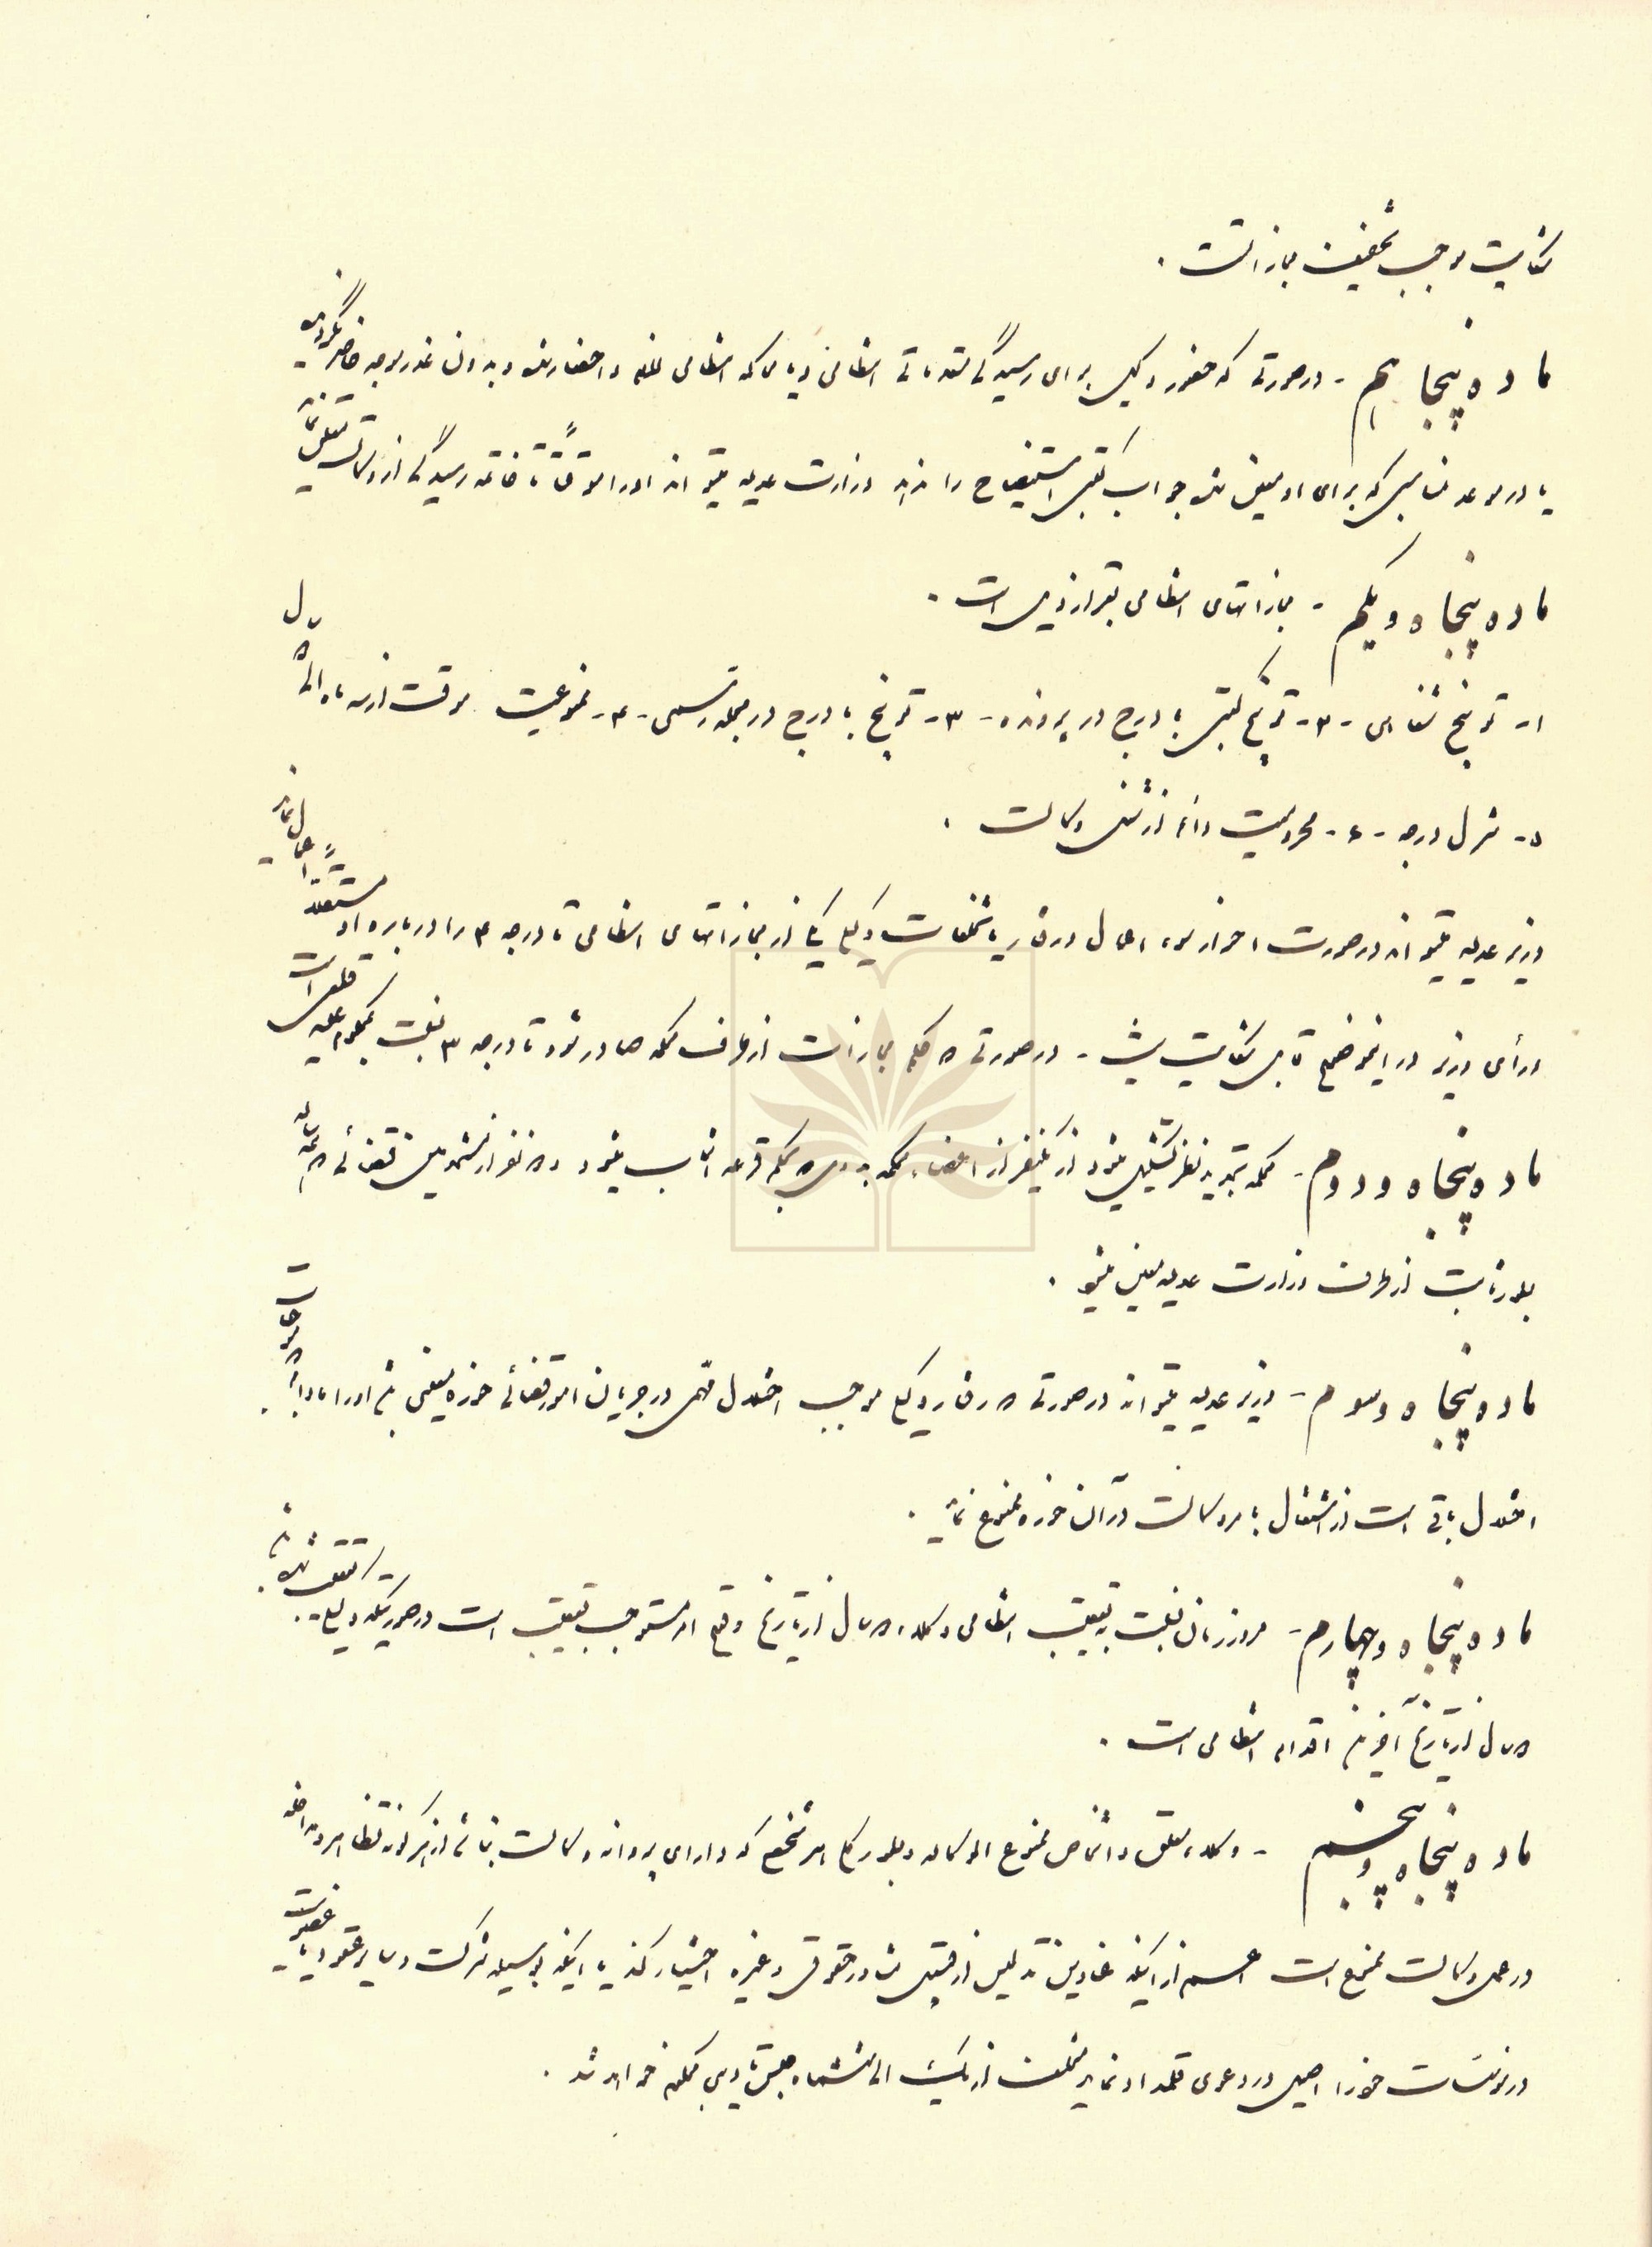 شکایت موجب تخفیف مجازاتست .
ماده پنجاهم - در صورتی که حضور وکیل برای رسیدگی مقدماتی انتظامی و یا محاکمه انتظامی لازم و احضار بشود و بدون عذر موجه حاضر نگردید
یا در موعد مناسبی که برای او معین شده جواب کتبی استیضاح را ندهد وزارت عدلیه میتواند او را موقتاً تا خاتمه رسیدگی از وکالت معلق نماید
ماده پنجاه و یکم - مجازاتهای انتظامی بقرار ذیل است .
۱- توبیخ شفاهی - ۲- توبیخ کتبی با درج در پرونده - ۳- توبیخ با درج در مجله رسمی - ۴- ممنوعیت موقت از سه ماه الی ۵ سال
۵- تنزل درجه - ۶- محرومیت دائم از شغل وکالت .
وزیر عدلیه میتواند در صورت احراز سوء اعمال و رفتار یا تخلفات وکیل یکی از مجازاتهای انتظامی تا درجه ۴ را درباره او مستقلاً اعمال نماید
و رأی وزیر در اینموضوع قابل شکایت نیست - در صورتی که حکم مجازات از طرف محکمه صادر شود تا درجه ۳ نسبت بمحکوم علیه قطعی است
ماده پنجاه و دوم - محکمه تجدید نظر تشکیل میشود از یکنفر از اعضاء محکمه بدوی که بحکم قرعه انتخاب میشود و ۵ نفر از مستخدمین قضائی که همه ساله
بطور ثابت از طرف وزارت عدلیه معین میشود .
ماده پنجاه و سوم - وزیر عدلیه میتواند در صورتی که رفتار وکیل موجب اختلال مهمی در جریان امور قضائی حوزه معینی باشد او را مادام که موجبات
اختلال باقی است از اشتغال بامر وکالت در آن حوزه ممنوع نماید .
ماده پنجاه و چهارم - مرور زمان نسبت به تعقیب انتظامی وکلاء ۵ سال از تاریخ وقوع امر مستوجب تعقیب است و در صورتیکه وکیل تعقیب شده باشد
۵ سال از تاریخ آخرین اقدام انتظامی است .
ماده پنجاه و پنجم - وکلاء معلق و اشخاص ممنوع الوکاله و بطور کلی هر شخصی که دارای پروانه وکالت نباشد از هر گونه تظاهر و مداخله
در عمل وکالت ممنوع است اعم از اینکه عناوین تدلیس از قبیل مشاور حقوقی و غیره اختیار کند یا اینکه بوسیله شرکت و سایر عقود یا عضویت
در مؤسسات خود را اصیل در دعوی قلمداد نماید متخلف از یک الی ششماه حبس تأدیبی محکوم خواهد شد .